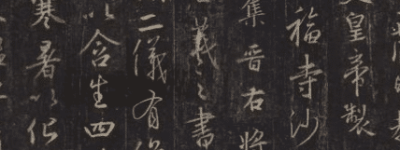 文皇帝製
福寺沙
集晉右將
羲之書
二儀有像
以含生四
寒暑以化